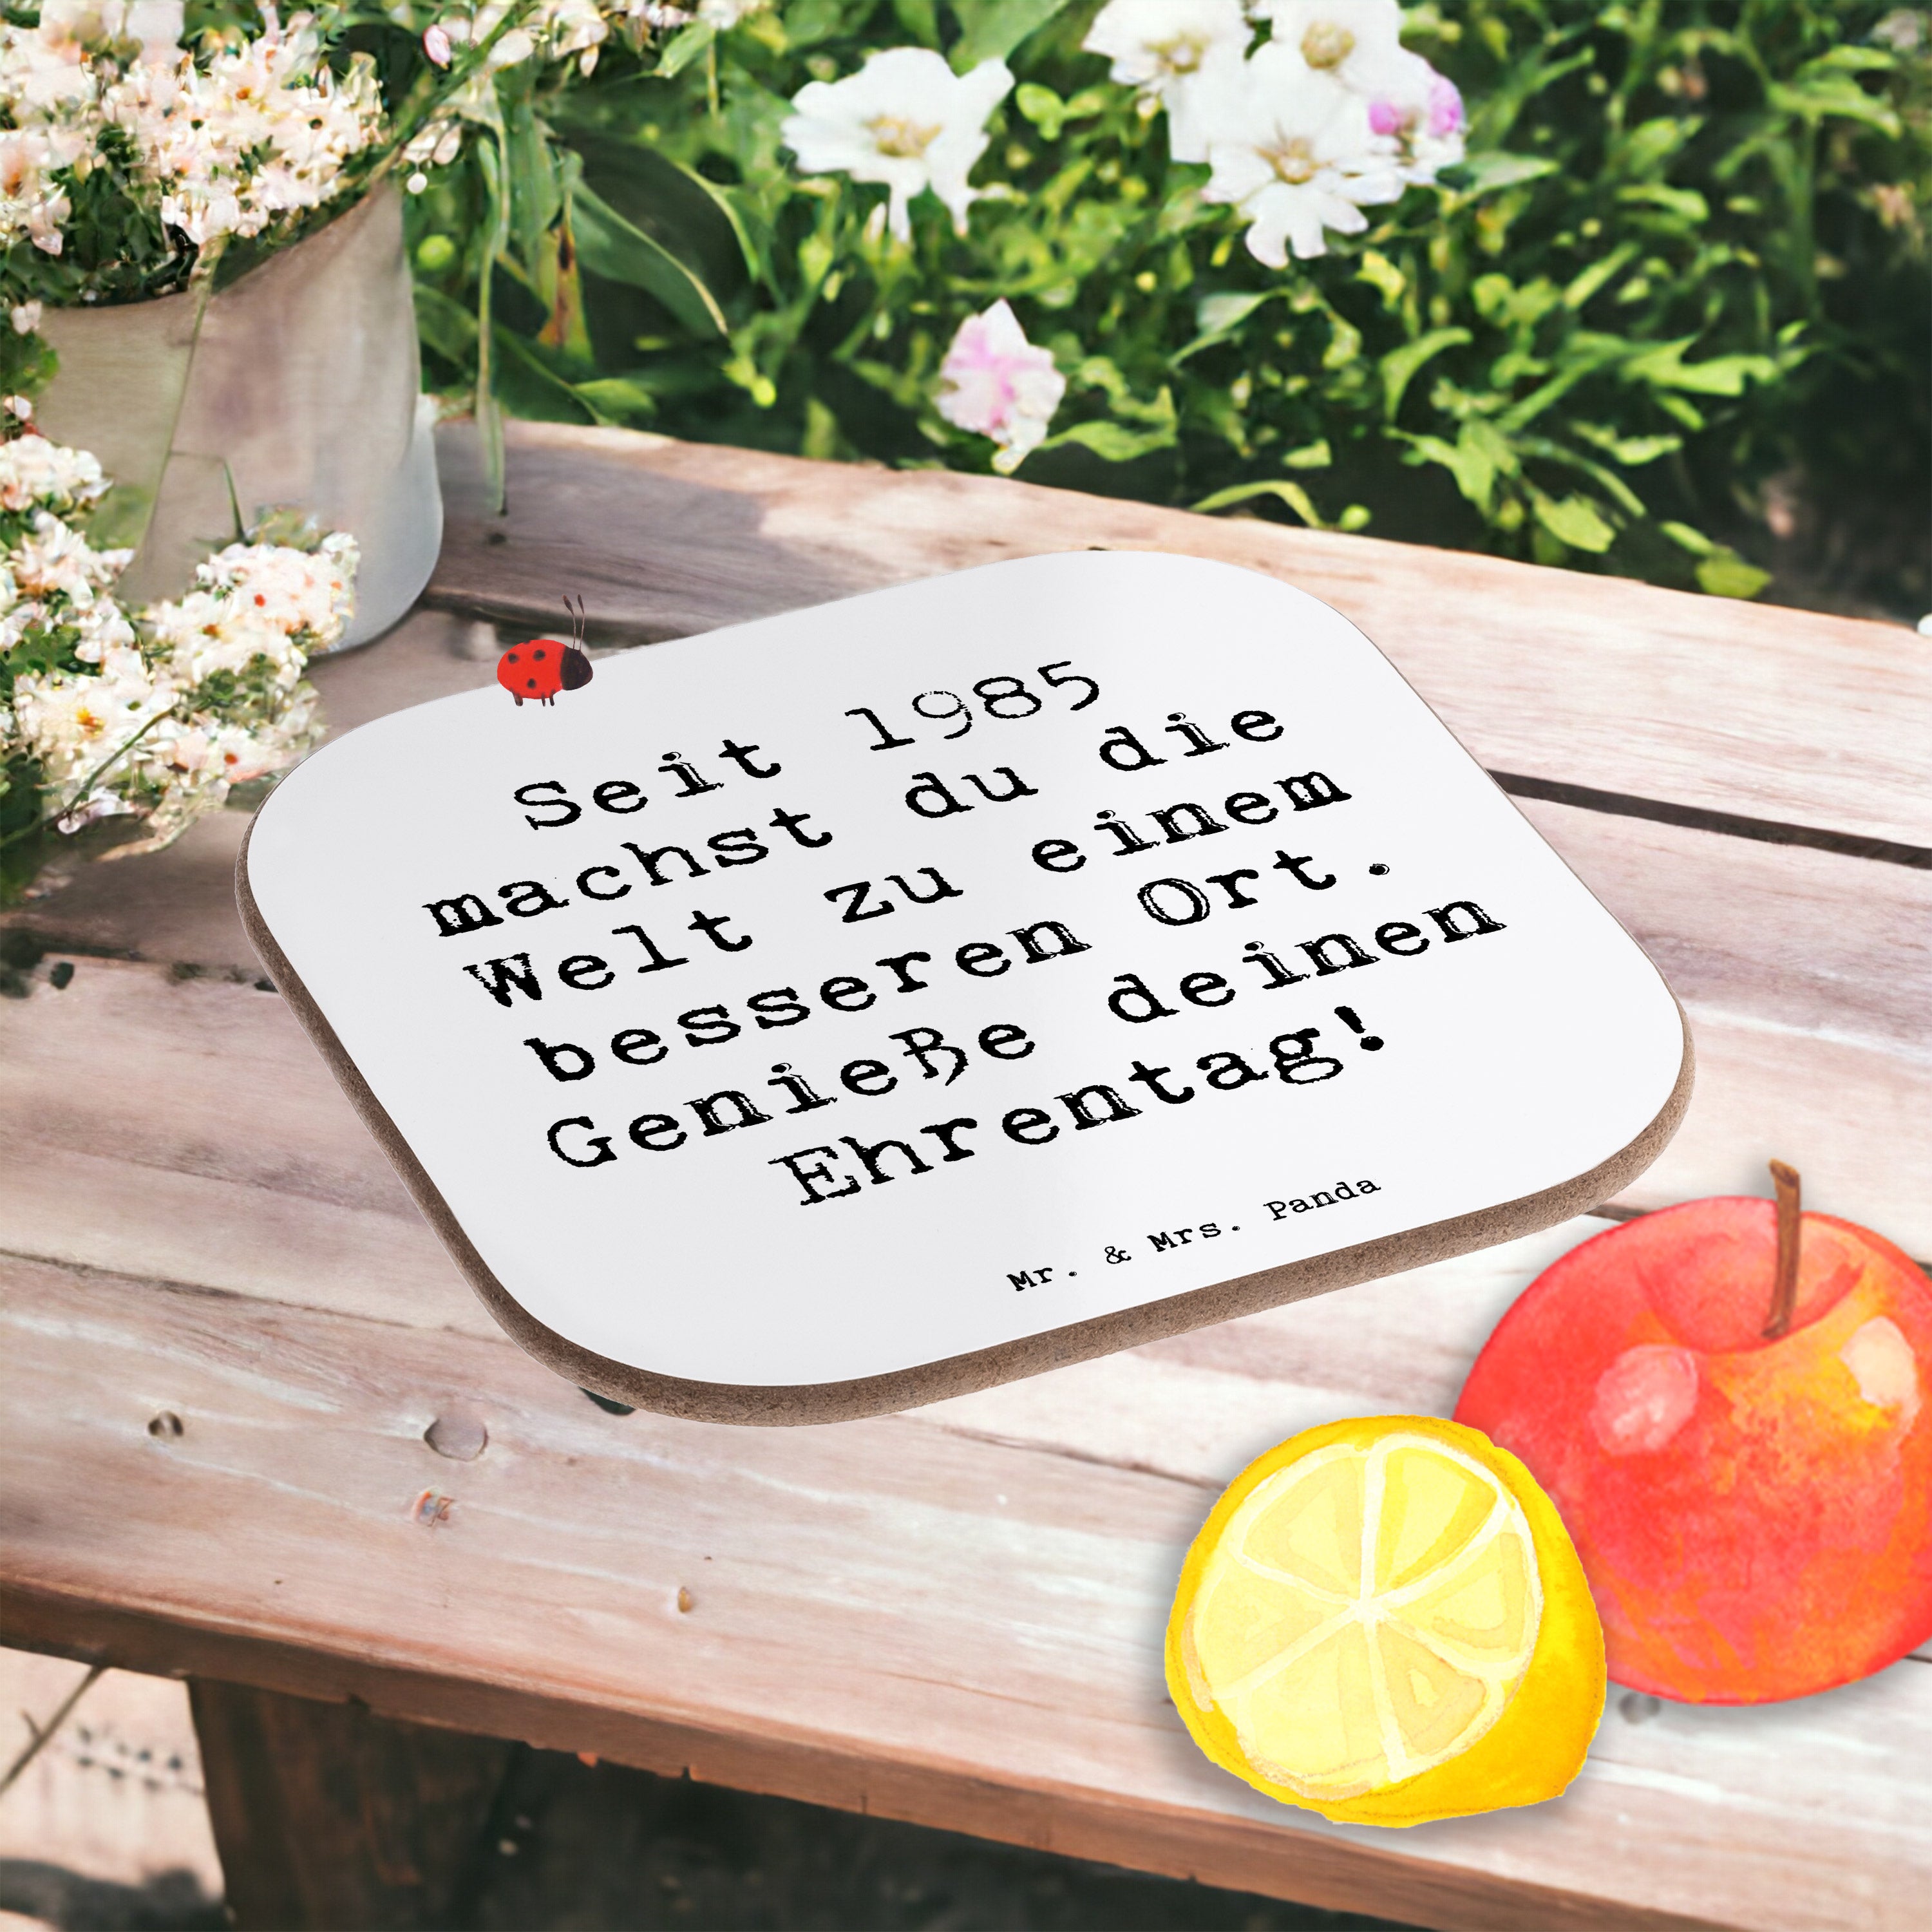 Seit 1985
machst du die
Welt zu einem
besseren Ort.
Genieße deinen
Ehrentag!
Mr. & Mrs. Panda